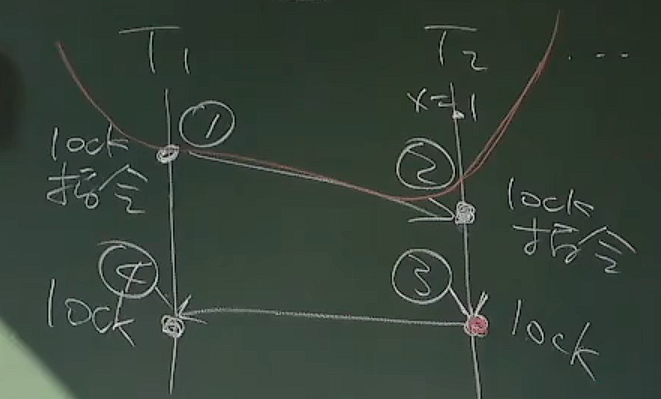 T1
T2
x=1
①
lock
指令
②
lock
指令
④
③
lock
lock